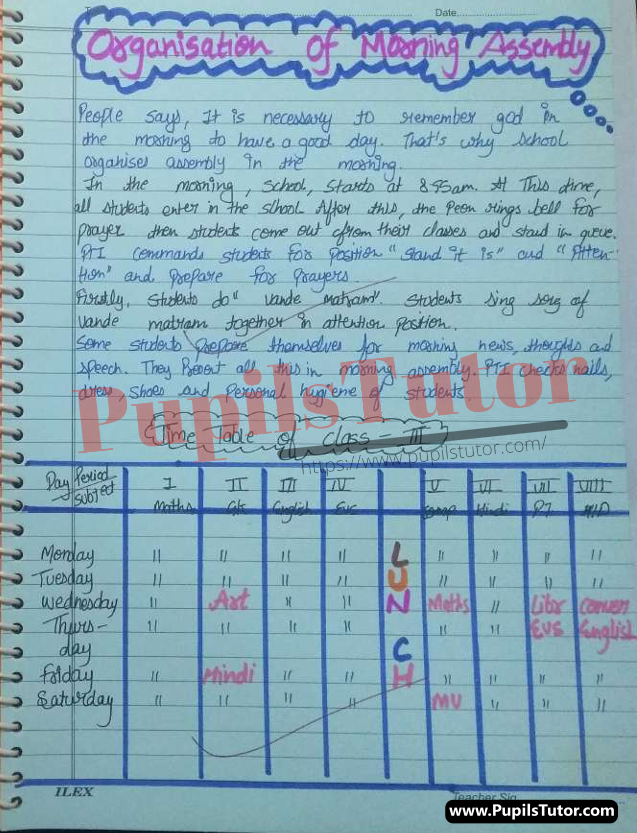 Date
Organisation of Morning Assembly
People says, It is necessary to remember god in
the morning to have a good day. That's why school
organises assembly in the morning.
In the morning, School, Starts at 8:45am. At This time,
all students enter in the School After this, the Peon rings bell for
prayer then students come out from their classes and stand in queue.
PTI commands students for Position "Stand it is" and "Atten-
tion" and prepare for Prayers.
Firstly, Students do "Vande Matram". Students Sing song of
Vande matram together in attention position.
Some students prepare themselves for morning news, thoughts and
speech. They Present all this in morning assembly. PTI checks nails,
dress, shoes and Personal hygiene of students
PupilsTutor
Time Table of class - III
https://www.pupilstutor.com/
Day Period Subject I II III IV V VI VII VIII
Maths GK English Evs Comp Hindi PT
Monday " " " " L " " " "
Tuesday " " " " U " " " "
Wednesday " Art " " N Maths " Libr Conver
Thurs- " " " " " " Evs English
day C
Friday " Hindi " " H " " " "
Saturday " " " " MV " " "
ILEX
Teacher Sig
www.PupilsTutor.com